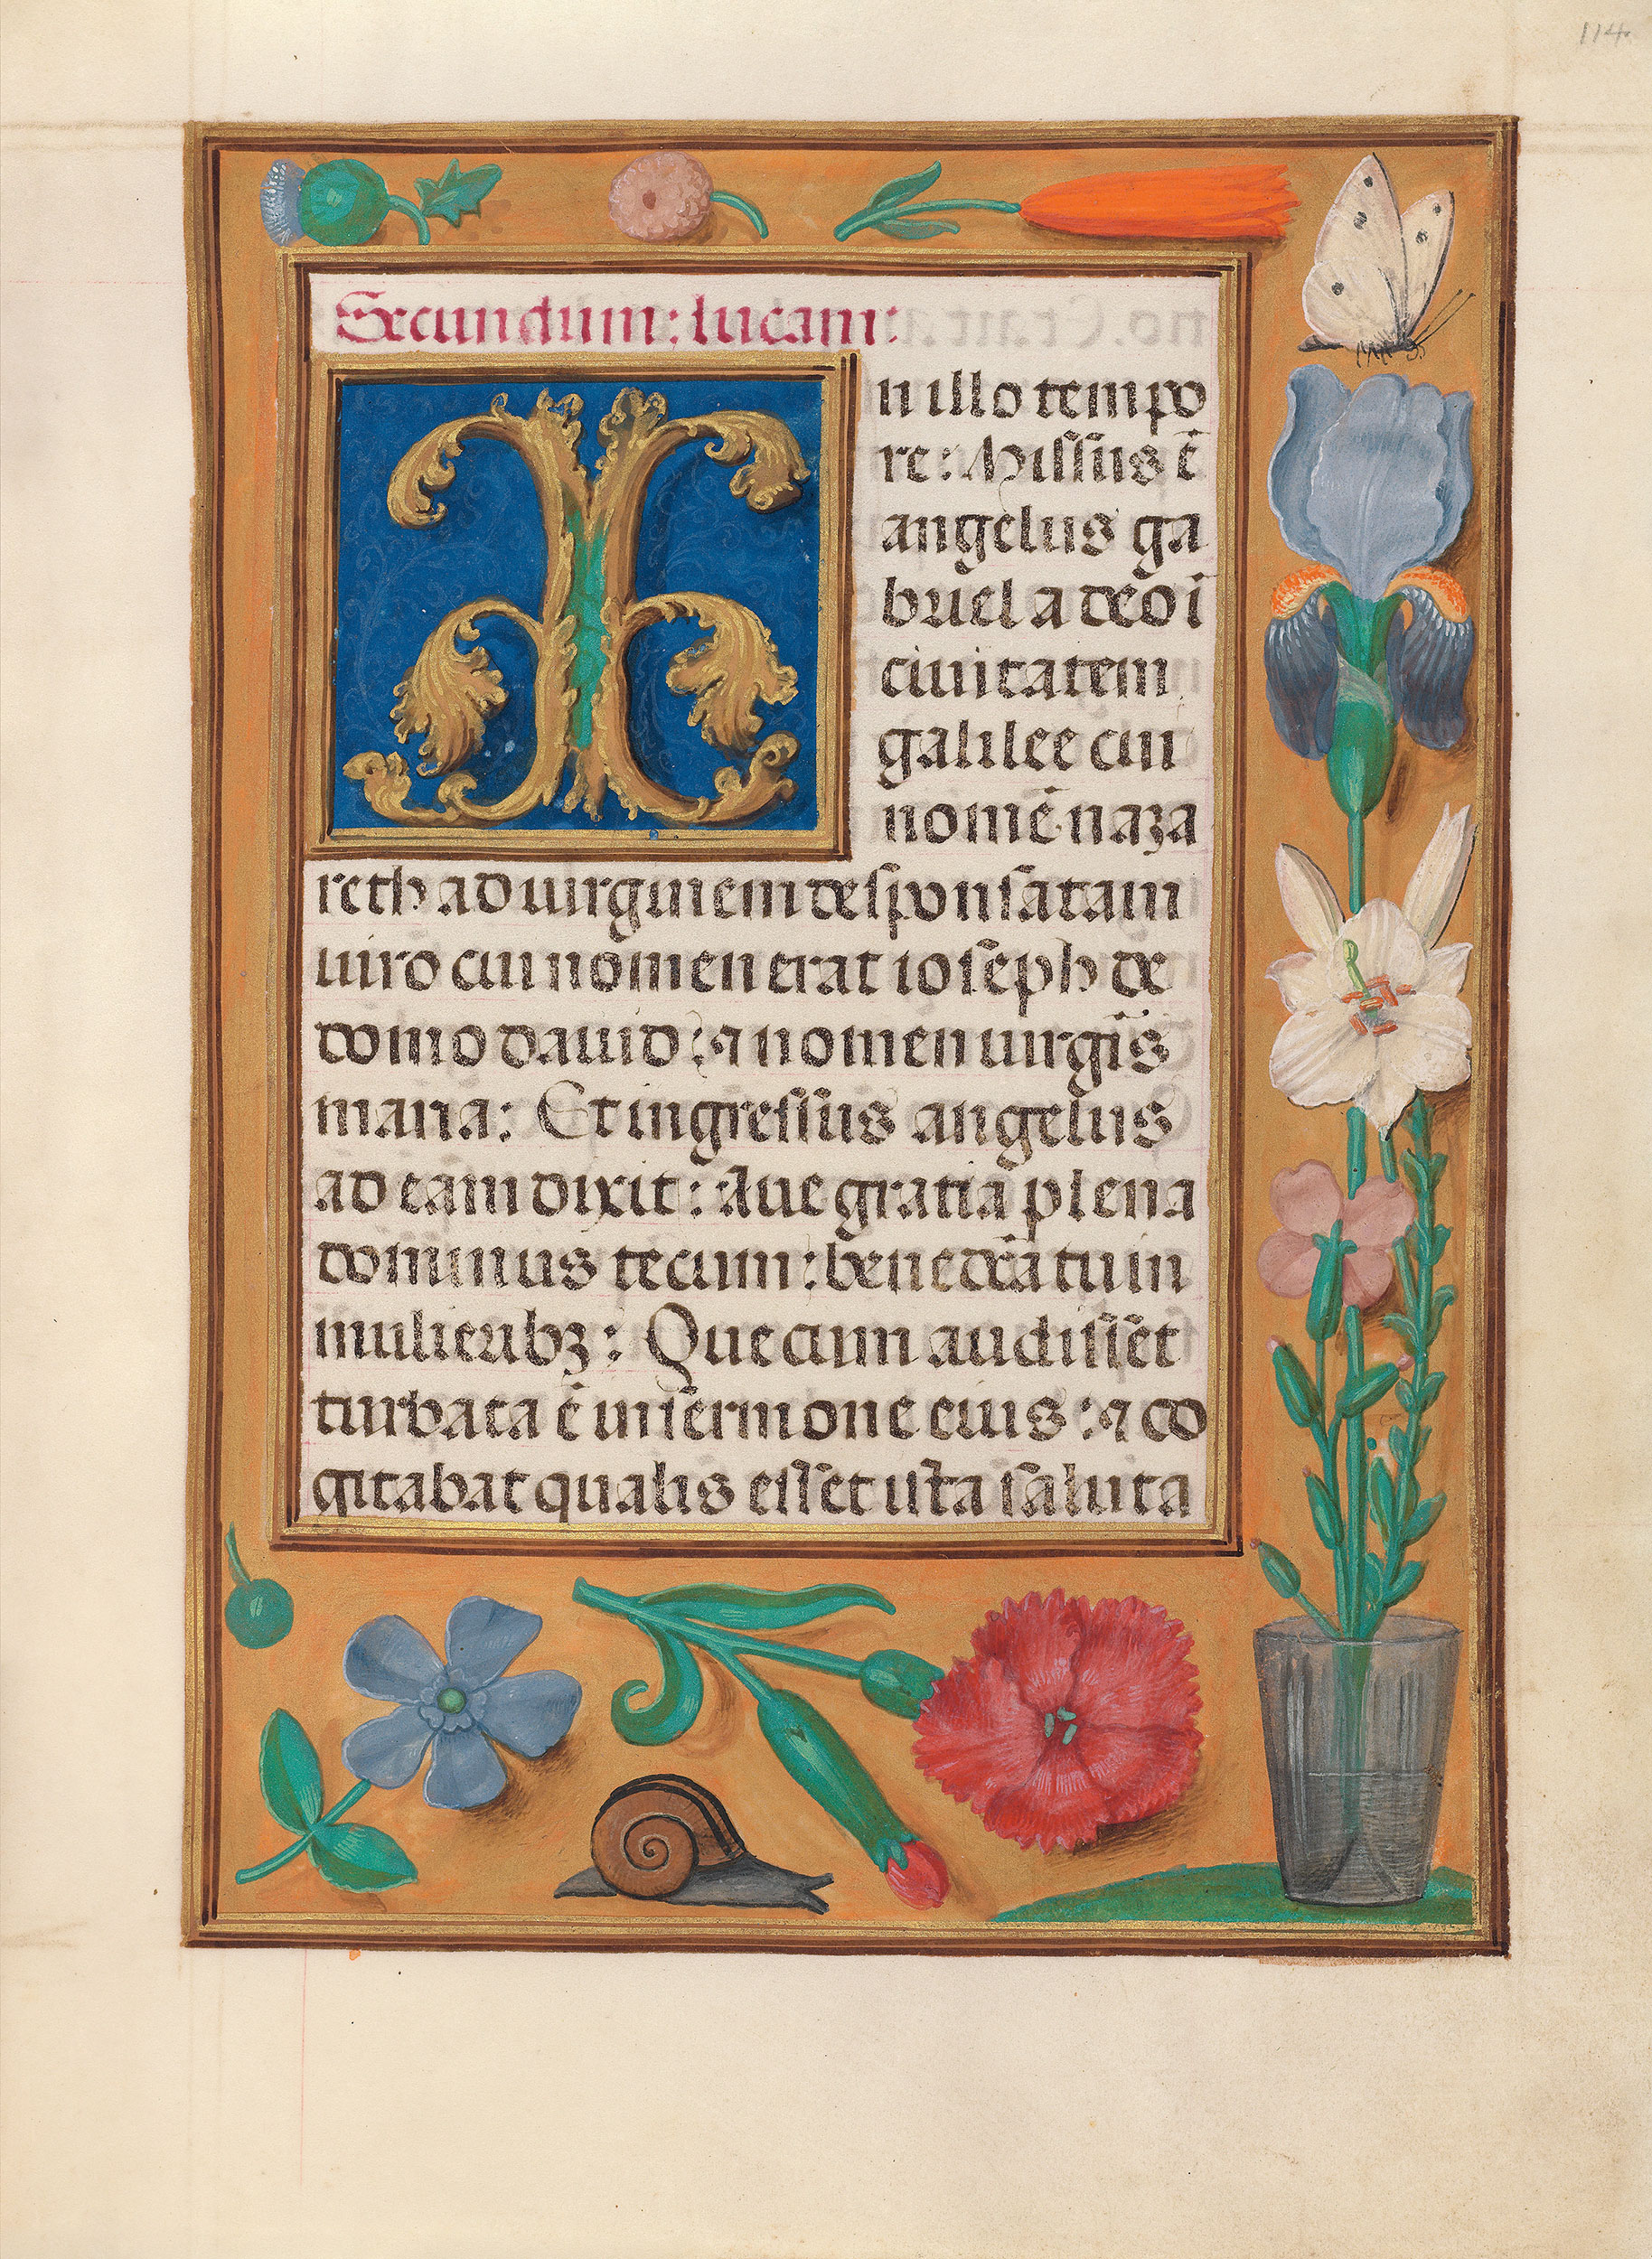 114
Secundum: lucam:
In illo tempo
re: Missus ē
angelus ga
briel a deo ī
ciuitatem
galilee cui
nomē naza
reth ad uirginem desponsatam
uiro cui nomen erat ioseph de
domo dauid: ⁊ nomen uirgīs
maria: Et ingressus angelus
ad eam dixit: Aue gratia plena
dominus tecum: benedc̄a tu in
mulieribꝫ: Que cum audisset
turbata ē in sermone eius: ⁊ co
gitabat qualis esset ista saluta